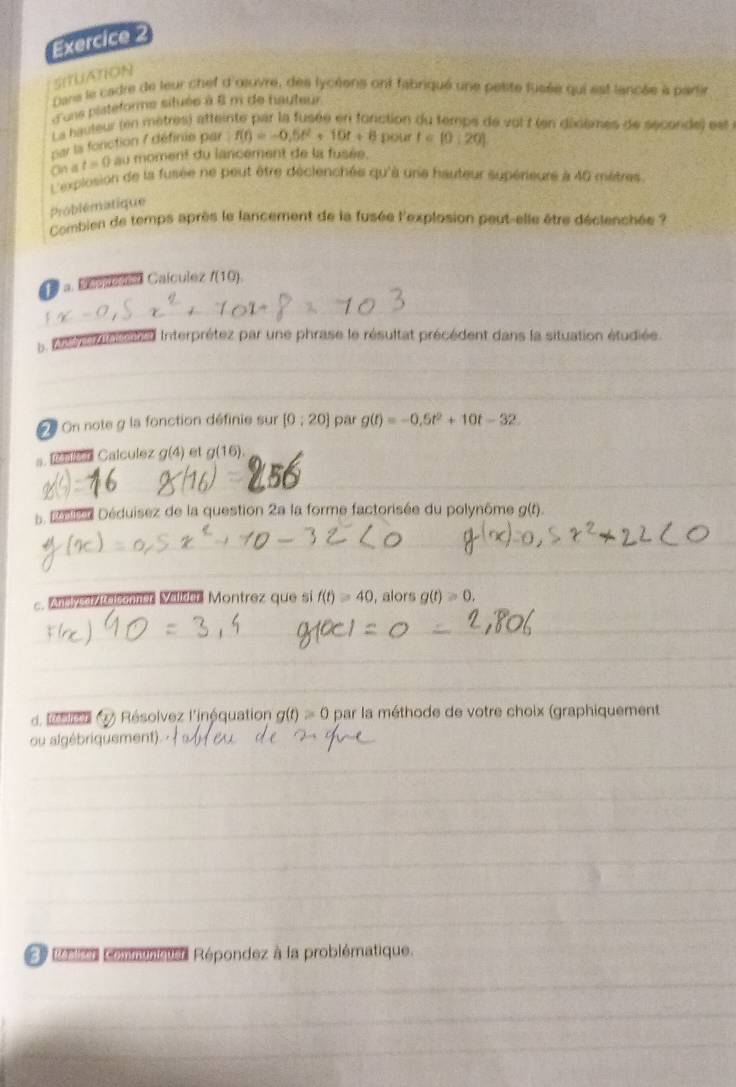 Exercice 2
SITUATION
Dans le cadre de leur chef d'œuvre, des lycéens ont fabriqué une petite fusée qui est lancée à partir
d'une plateforme située à 8 m de hauteur.
La hauteur (en mètres) atteinte par la fusée en fonction du temps de vol t (en dixièmes de seconde) est
par la fonction f définie par : f(t) = -0,5t² + 10t + 8 pour t ∈ [0 ; 20].
On a t = 0 au moment du lancement de la fusée.
L'explosion de la fusée ne peut être déclenchée qu'à une hauteur supérieure à 40 mètres.
Problématique
Combien de temps après le lancement de la fusée l'explosion peut-elle être déclenchée ?
1 a. S'approprier Calculez f(10).
x -0,5 x² + 10x+ 8 = 103
b. Analyser/Raisonner Interprétez par une phrase le résultat précédent dans la situation étudiée.
2 On note g la fonction définie sur [0 ; 20] par g(t) = -0,5t² + 10t - 32.
a. Réaliser Calculez g(4) et g(16).
= 16 g(16) = 256
b. Réaliser Déduisez de la question 2a la forme factorisée du polynôme g(t).
g(x) = 0,5 x² + 10 - 32 < 0 g(x)=0,5 x² + 22 < 0
c. Analyser/Raisonner Valider Montrez que si f(t) ⩾ 40, alors g(t) ⩾ 0.
f(x) 40 = 3,4 g(x) = 0 = 2,806
d. Réaliser Résolvez l'inéquation g(t) ⩾ 0 par la méthode de votre choix (graphiquement
ou algébriquement). tableu de signe
3 Réaliser Communiquer Répondez à la problématique.